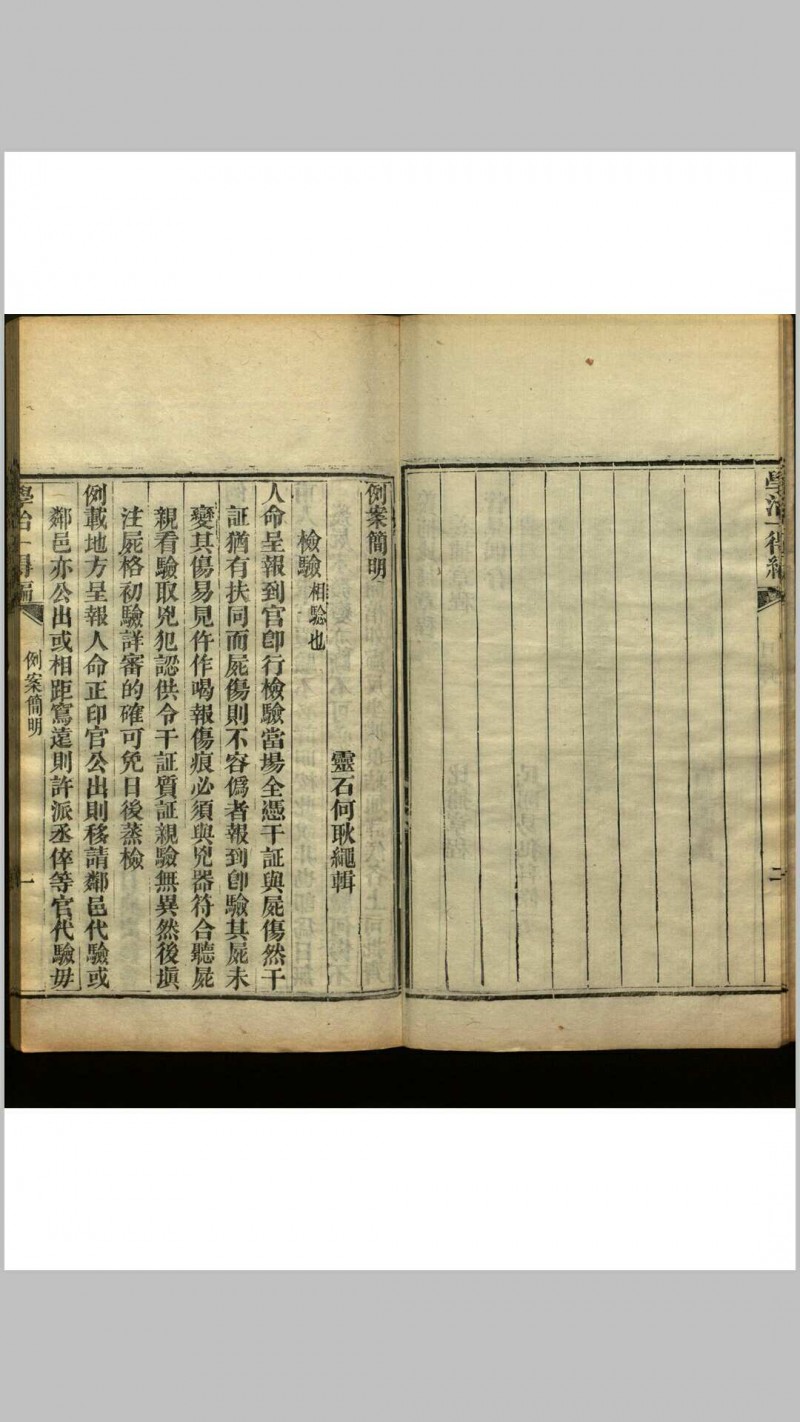 學治一得編
二
例案簡明
靈石何耿繩輯
檢驗相驗也
人命呈報到官卽行檢驗當場全憑干証與屍傷然干
証猶有扶同而屍傷則不容僞者報到卽驗其屍未
變其傷易見仵作喝報傷痕必須與兇器符合聽屍
親看驗取兇犯認供令干証質証親驗無異然後塡
注屍格初驗詳審的確可免日後蒸檢
例載地方呈報人命正印官公出則移請鄰邑代驗或
鄰邑亦公出或相距寫遠則許派丞倅等官代驗毋
學治一得編
例案簡明
一